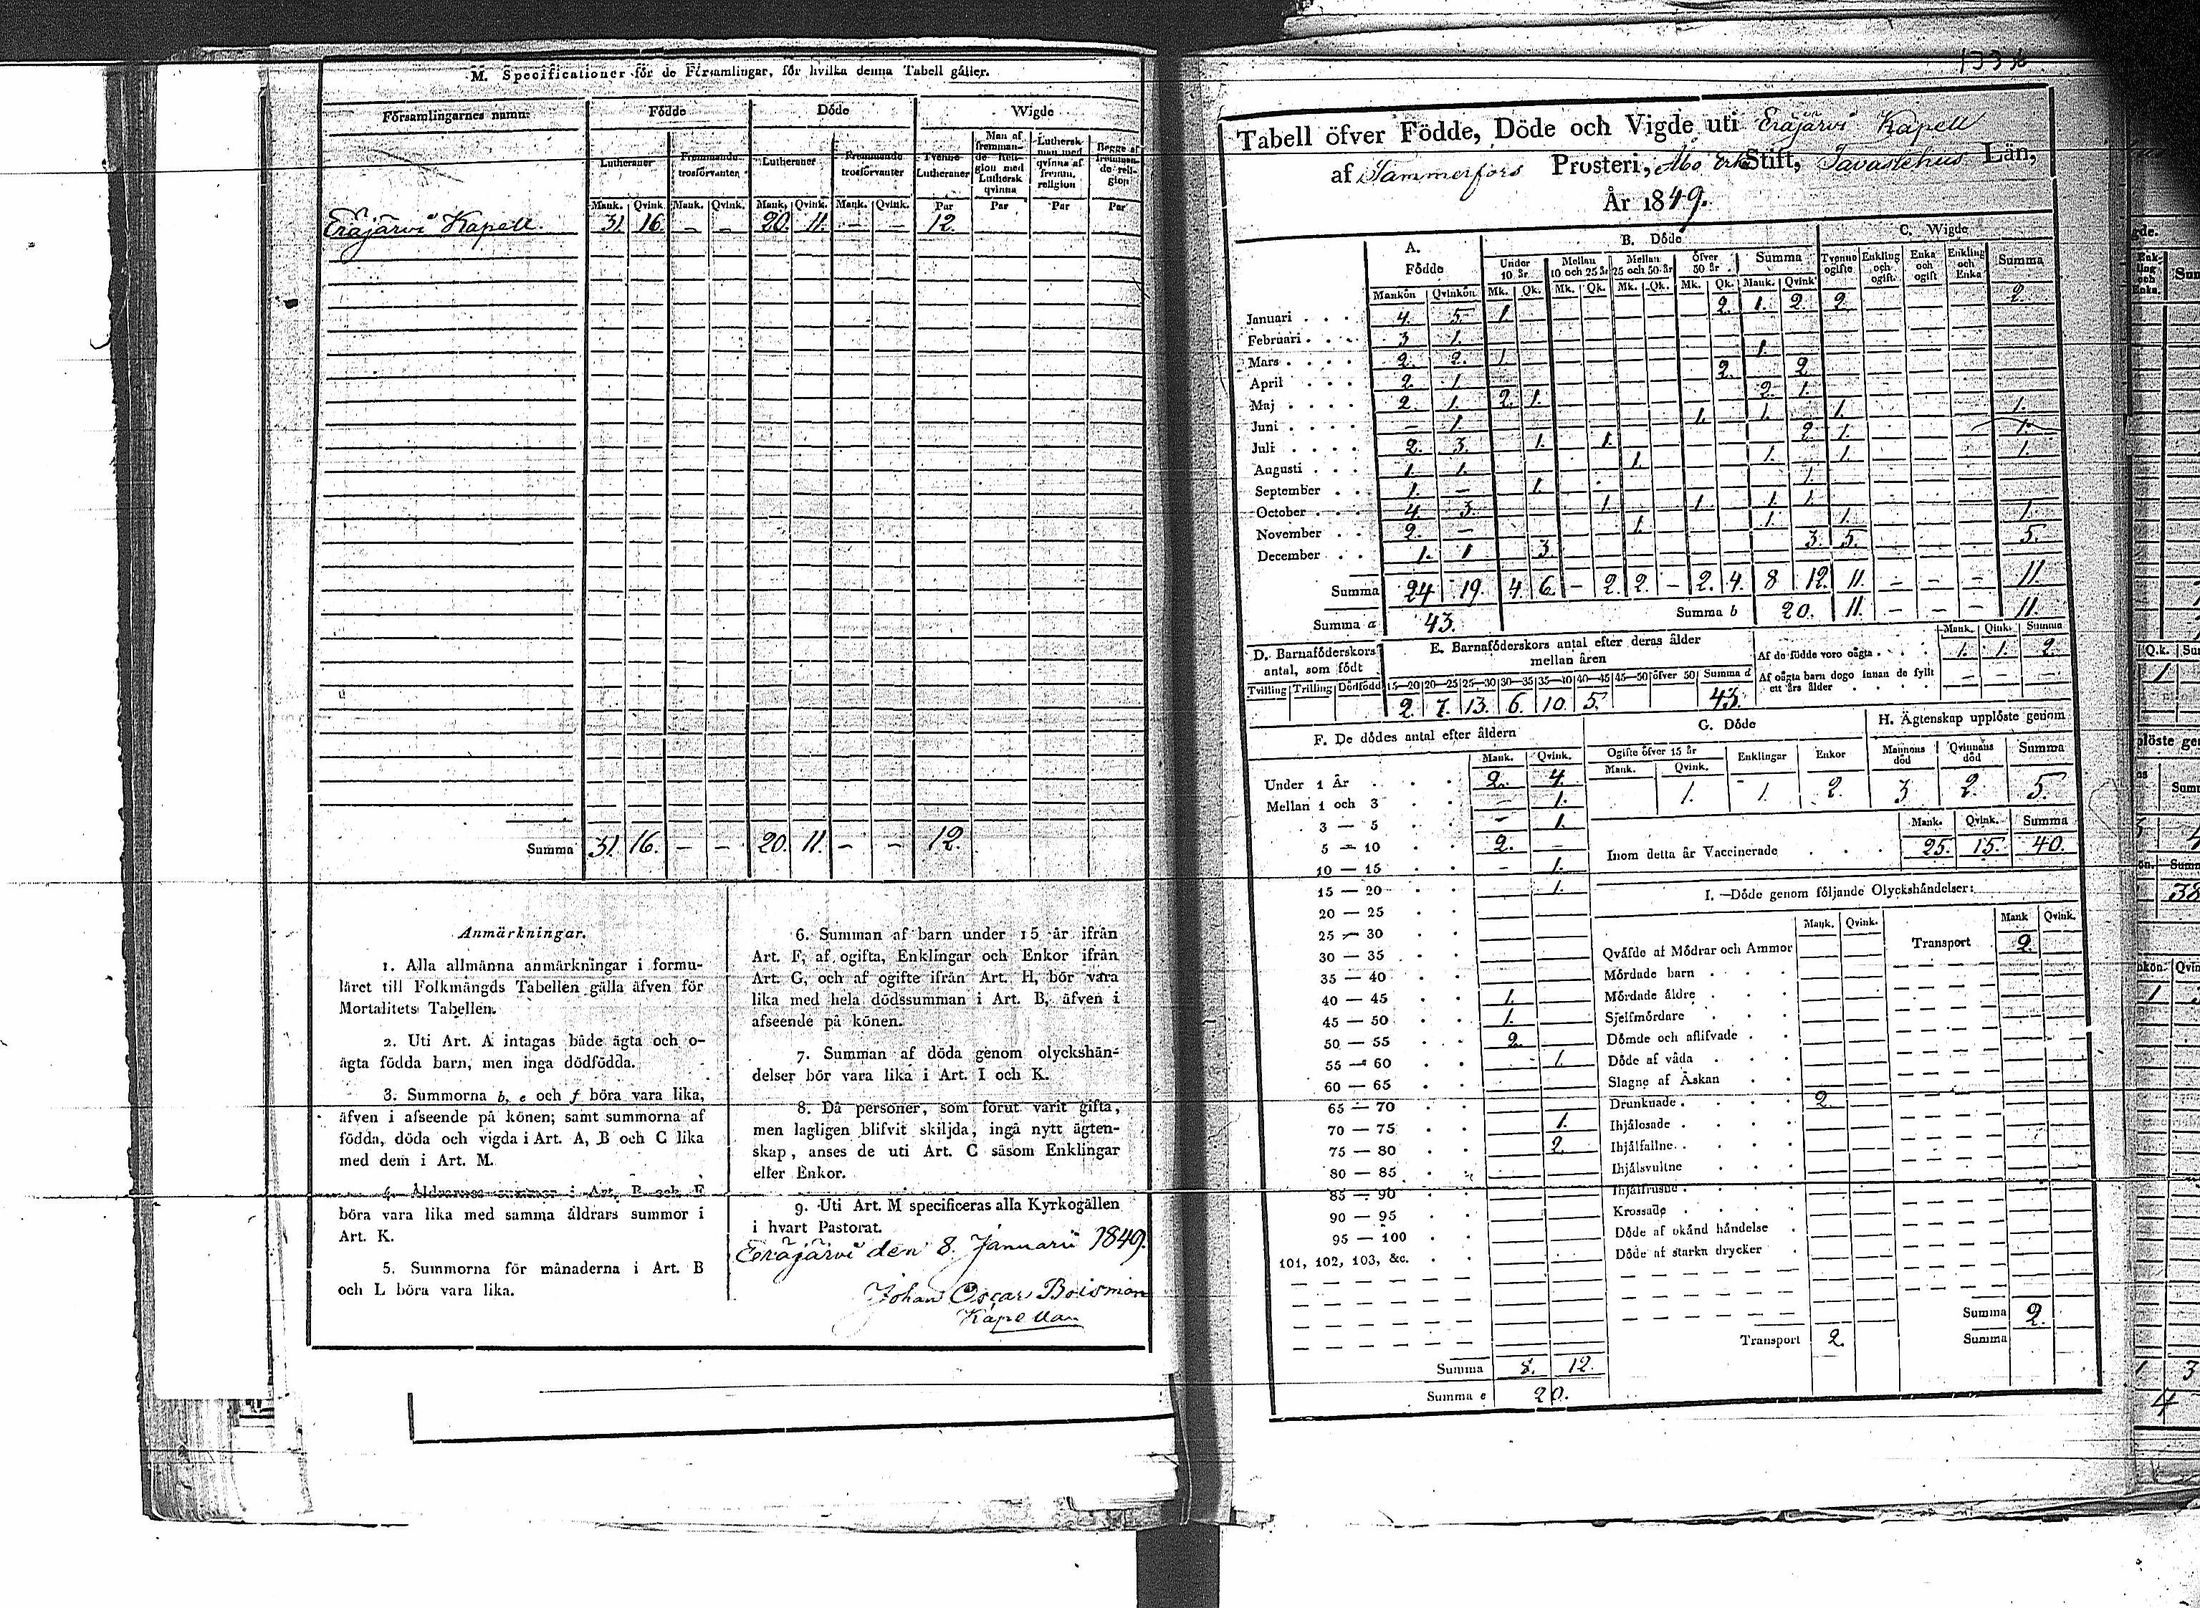 M. Specificationer för de Församlingar, för hvilka denna Tabell gäller.
Församlingarnes namn: Födde Döde Wigde
Lutheraner Fremmande trosförvanter Lutheraner Fremmande trosförvanter Tvenne Lutheraner Man af fremmande Religion med Luthersk qvinna Luthersk man med qvinna af fremm. religion Begge af fremmande religion
Mank. Qvink. Mank. Qvink. Mank. Qvink. Mank. Qvink. Par Par Par Par
Eräjärvi Kapell. 31. 16. – – 20. 11. – – 12.
Summa 31. 16. – – 20. 11. – – 12.
Anmärkningar.
1. Alla allmänna anmärkningar i formu-
läret till Folkmängds Tabellen gälla äfven för
Mortalitets Tabellen.
2. Uti Art. A intagas både ägta och o-
ägta födda barn, men inga dödfödda.
3. Summorna b, e och f böra vara lika,
äfven i afseende på könen; samt summorna af
födda, döda och vigda i Art. A, B och C lika
med dem i Art. M.
4. Åldrarnes summor i Art. B och F
böra vara lika med samma åldrars summor i
Art. K.
5. Summorna för månaderna i Art. B
och L böra vara lika.
6. Summan af barn under 15 år ifrån
Art. F, af ogifta, Enklingar och Enkor ifrån
Art. G, och af ogifte ifrån Art. H, bör vara
lika med hela dödssumman i Art. B, äfven i
afseende på könen.
7. Summan af döda genom olyckshän-
delser bör vara lika i Art. I och K.
8. Då personer, som förut varit gifta,
men lagligen blifvit skiljda, ingå nytt ägten-
skap, anses de uti Art. C såsom Enklingar
eller Enkor.
9. Uti Art. M specificeras alla Kyrkogällen
i hvart Pastorat.
Eräjärvi den 8. Januarii 1849.
Johan Oscar Boisman
Kapellan
Tabell öfver Födde, Döde och Vigde uti Eräjärvi Kapell
af Tammerfors Prosteri, Åbo Erke Stift, Tavastehus Län,
År 1849.
A. Födde B. Döde C. Wigde
Under 10 år Mellan 10 och 25 år Mellan 25 och 50 år Öfver 50 år Summa Tvenne ogifte Enkling och ogift Enka och ogift Enkling och Enka Summa
Mankön Qvinkön Mk. Qk. Mk. Qk. Mk. Qk. Mk. Qk. Mank. Qvink.
Januari 4. 5. 1. 2. 1. 2. 2. 2.
Februari 3. 1.
Mars 2. 2. 1. 1.
April 2. 1. 2. 2.
Maj 2. 1. 2. 1. 2. 1.
Juni – 1. 1. 1. 1. 1.
Juli 2. 3. 1. 1. 2. 1. 1.
Augusti 1. 1. 1. 1. 1. 1.
September 1. – 1. 1.
October 4. 3. 1. 1. 1. 1.
November 2. – 1. 1. 1. 1.
December 1. 1 3. 3. 5. 5.
Summa 24 19. 4. 6. – 2. 2. – 2. 4. 8 12. 11. – – – 11.
Summa a 43. Summa b 20. 11. – – – 11.
D. Barnaföderskors antal, som födt
Tvilling Trilling Dödfödd
E. Barnaföderskors antal efter deras ålder
mellan åren
15—20 20—25 25—30 30—35 35—40 40—45 45—50 öfver 50 Summa d
2. 7. 13. 6. 10. 5. 43.
Mank. Qink. Summa
Af de födde voro oägta 1. 1. 2.
Af oägta barn dogo innan de fyllt
ett års ålder – – –
F. De dödes antal efter åldern
Mank. Qvink.
Under 1 År 2. 4.
Mellan 1 och 3 – 1.
3 — 5 – 1.
5 — 10 2. –
10 — 15 – 1.
15 — 20 1.
20 — 25
25 — 30
30 — 35
35 — 40
40 — 45 1.
45 — 50 1.
50 — 55 2.
55 — 60 1.
60 — 65
65 — 70
70 — 75 1.
75 — 80 2.
80 — 85
85 — 90
90 — 95
95 — 100
101, 102, 103, &c.
Summa 8. 12.
Summa e 20.
G. Döde
Ogifte öfver 15 år Enklingar Enkor
Mank. Qvink.
1. 1. 2.
H. Ägtenskap upplöste genom
Mannens död Qvinnans död Summa
3 2. 5.
Mank. Qvink. Summa
Inom detta år Vaccinerade 25. 15. 40.
I. Döde genom följande Olyckshändelser:
Mank. Qvink. Mank Qvink.
Qväfde af Mödrar och Ammor Transport 2.
Mördade barn
Mördade äldre
Sjelfmördare
Dömde och aflifvade
Döde af våda
Slagne af Åskan
Drunknade 2.
Ihjälosade
Ihjälfallne
Ihjälsvultne
Ihjälfrusne
Krossade
Döde af okänd händelse
Döde af starka drycker
Summa 2.
Transport 2. Summa